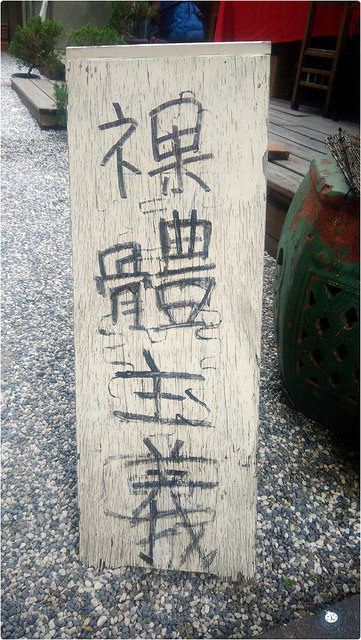 裸體主義